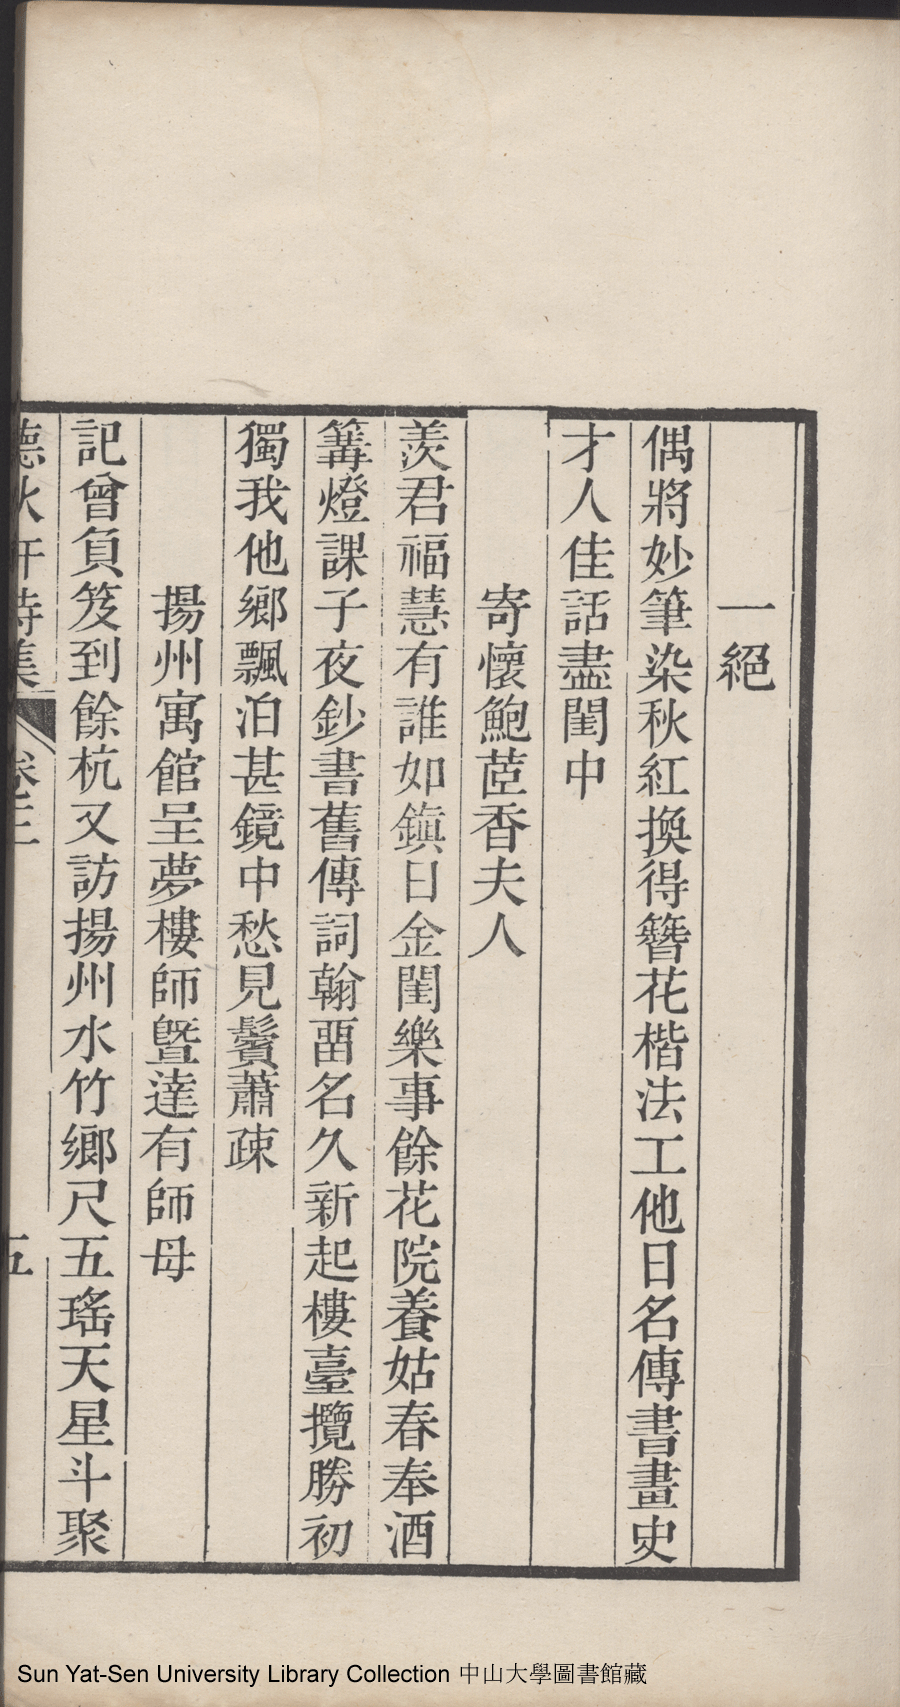 一絕
偶將妙筆染秋紅換得簪花楷法工他日名傳書畫史
才人佳話盡閨中
寄懷鮑茝香夫人
羨君福慧有誰如鎭日金閨樂事餘花院養姑春奉酒
篝燈課子夜鈔書舊傳詞翰畱名久新起樓臺攬勝初
獨我他鄉飄泊甚鏡中愁見鬢蕭疎
揚州寓館呈夢樓師曁達有師母
記曾負笈到餘杭又訪揚州水竹鄉尺五瑤天星斗聚
德 軒詩集 卷三 五
Sun Yat-Sen University Library Collection 中山大學圖書館藏